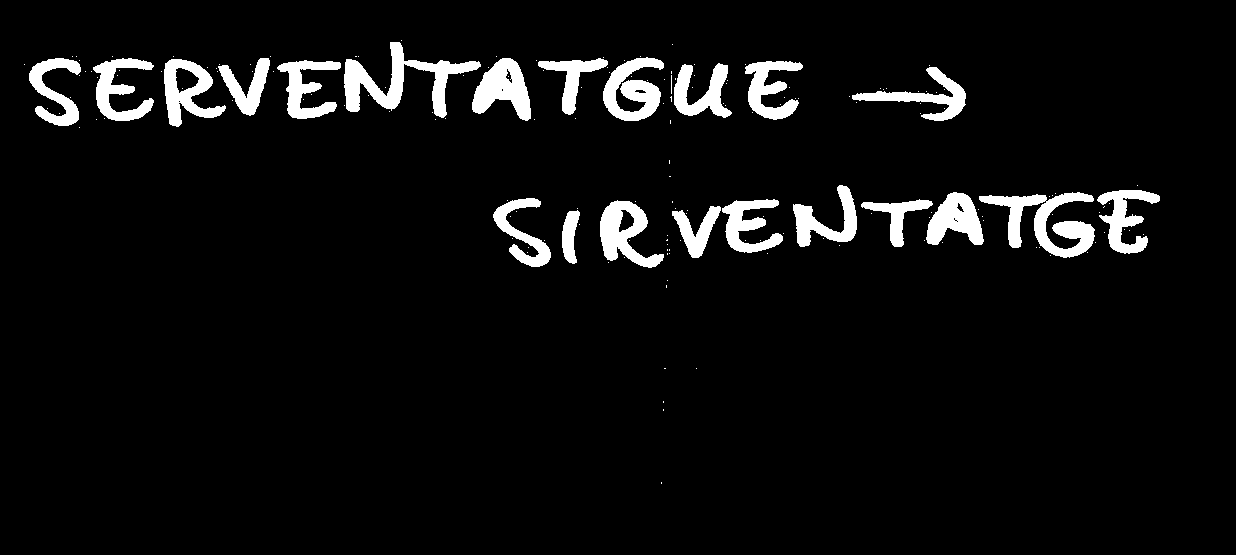 SERVENTATGUE →
SIRVENTATGE